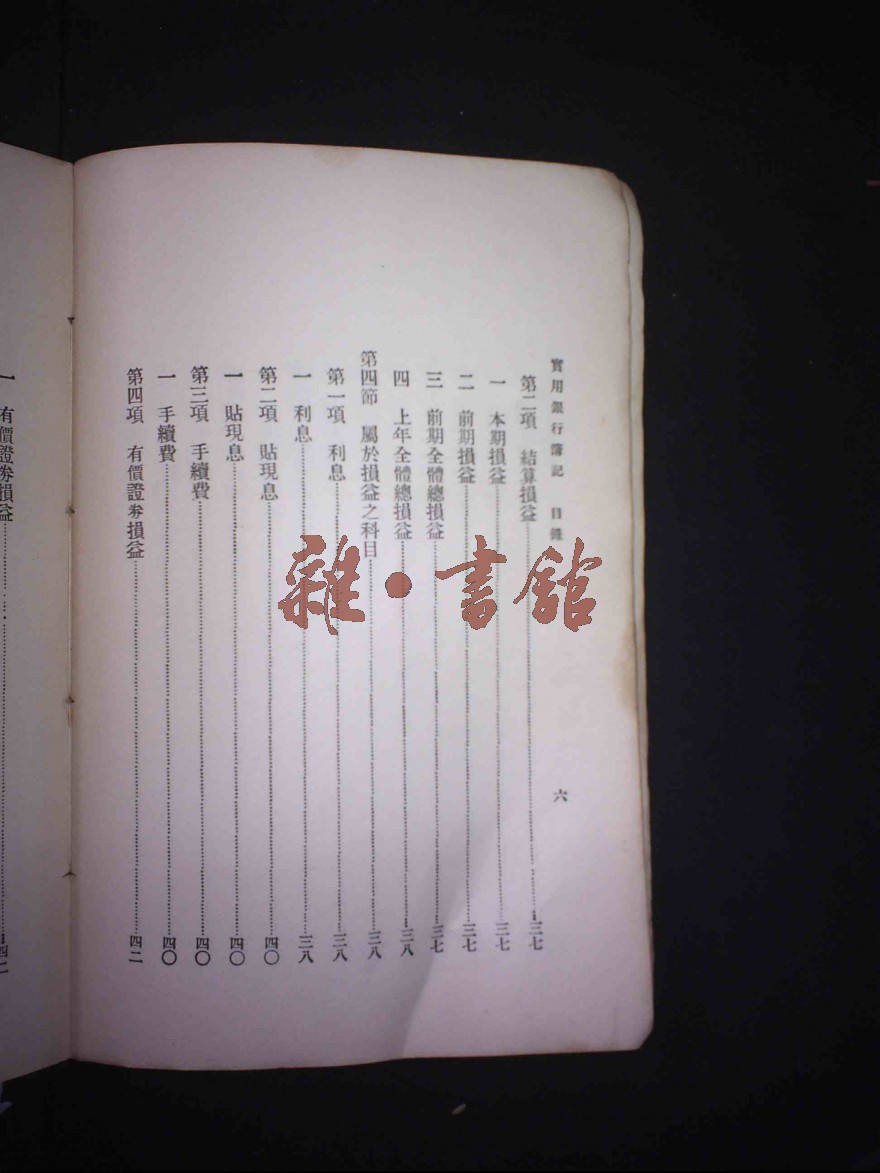 實用銀行簿記 目錄 六
第二項 結算損益 三七
一 本期損益 三七
二 前期損益 三七
三 前期全體總損益 三七
四 上年全體總損益 三八
第四節 屬於損益之科目 三八
第一項 利息 三八
一 利息 三八
第二項 貼現息 四〇
一 貼現息 四〇
第三項 手續費 四〇
一 手續費 四〇
第四項 有價證券損益 四二
一 有價證券損益 四二
雜·書館